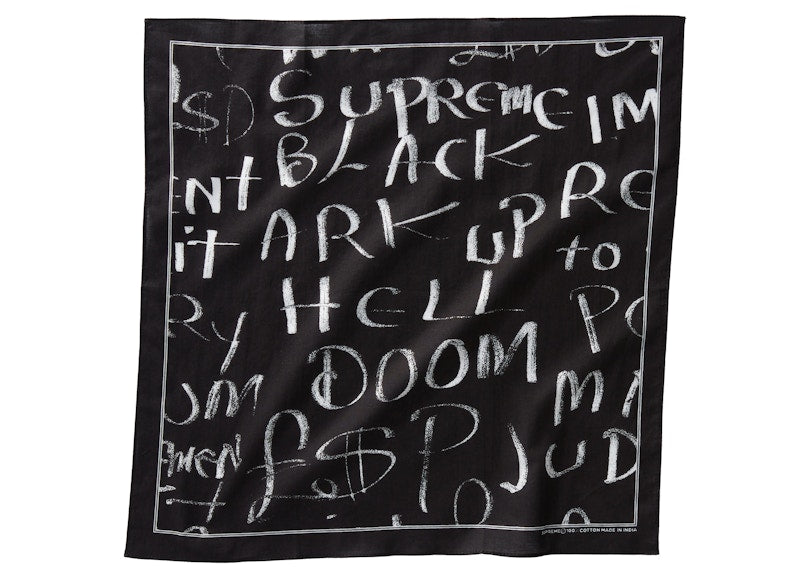 $D SUPREME IM
BLACK
NT ARK UP PRE
it to
RY HELL PO
UM DOOM MI
MEN £.$ P JUD
SUPREME©100% COTTON MADE IN INDIA